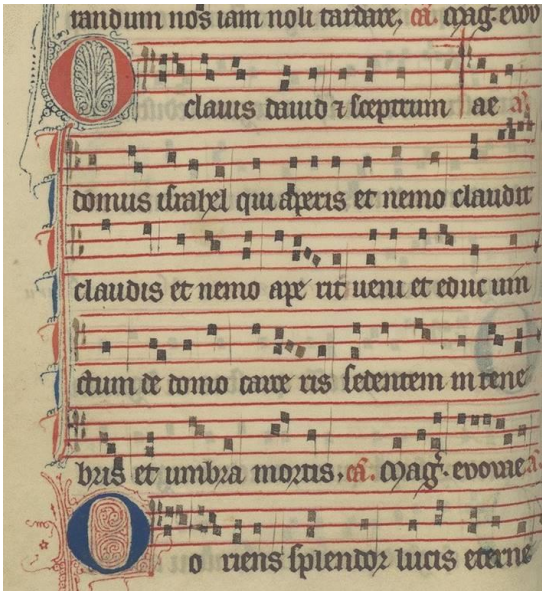 tandum nos iam noli tardare. ca. Mag. evov
O clavis david ⁊ sceptrum ae a.
domus israhel qui aperis et nemo claudit
claudis et nemo ape rit veni et educ vin
ctum de domo carce ris sedentem in tene
bris et umbra mortis. ca. Mag. evovae a.
O o riens splendor lucis eterne